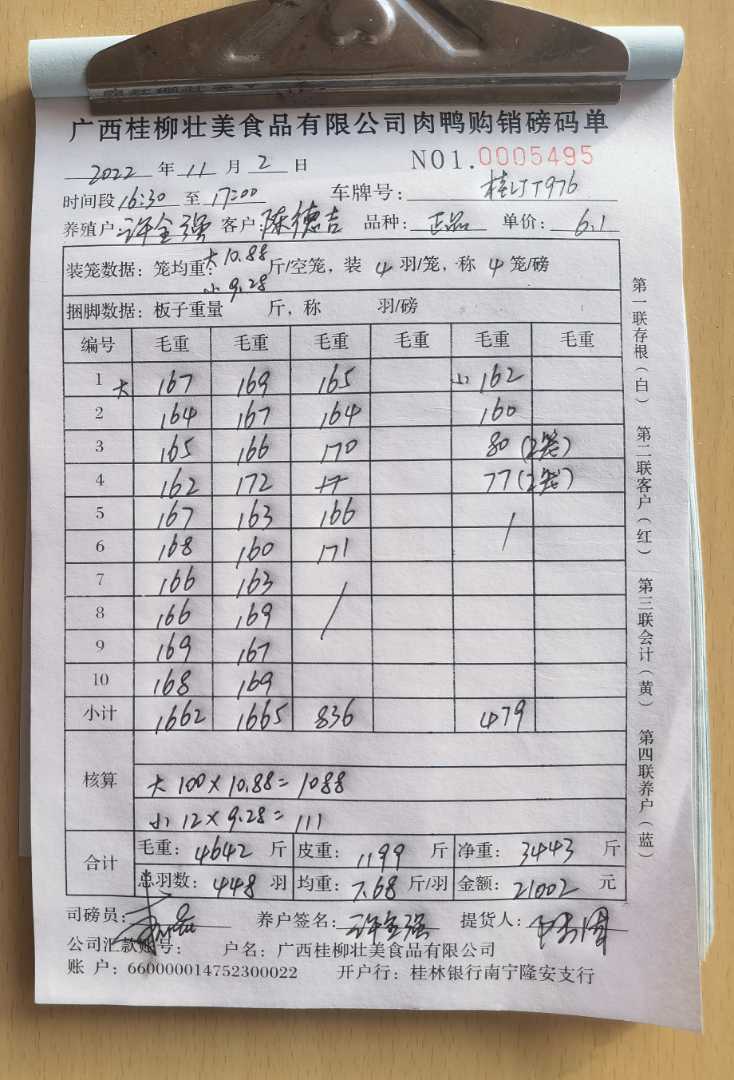 广西桂柳壮美食品有限公司肉鸭购销磅码单
2022 年 11 月 2 日 NO1.0005495
时间段 16:30 至 17:00 车牌号: 桂 T976
养殖户: 许全强 客户: 陈德吉 品种: 正品 单价: 6.1
装笼数据: 笼均重: 大 10.88 小 9.28 斤/空笼, 装 4 羽/笼, 称 4 笼/磅
捆脚数据: 板子重量 斤, 称 羽/磅
编号 毛重 毛重 毛重 毛重 毛重 毛重
1 大 167 169 165 小 162
2 164 167 164 160
3 165 166 170 80 (2笼)
4 162 172 77 (2笼)
5 167 163 166 /
6 168 160 171
7 166 163 /
8 166 169
9 169 167
10 168 169
小计 1662 1665 836 479
核算
大 100 × 10.88 = 1088
小 12 × 9.28 = 111
合计 毛重: 4642 斤 皮重: 1199 斤 净重: 3443 斤
总羽数: 448 羽 均重: 7.68 斤/羽 金额: 21002 元
司磅员: 养户签名: 许全强 提货人:
公司汇款账号: 户名: 广西桂柳壮美食品有限公司
账 户: 660000014752300022 开户行: 桂林银行南宁隆安支行
第一联存根(白) 第二联客户(红) 第三联会计(黄) 第四联养户(蓝)